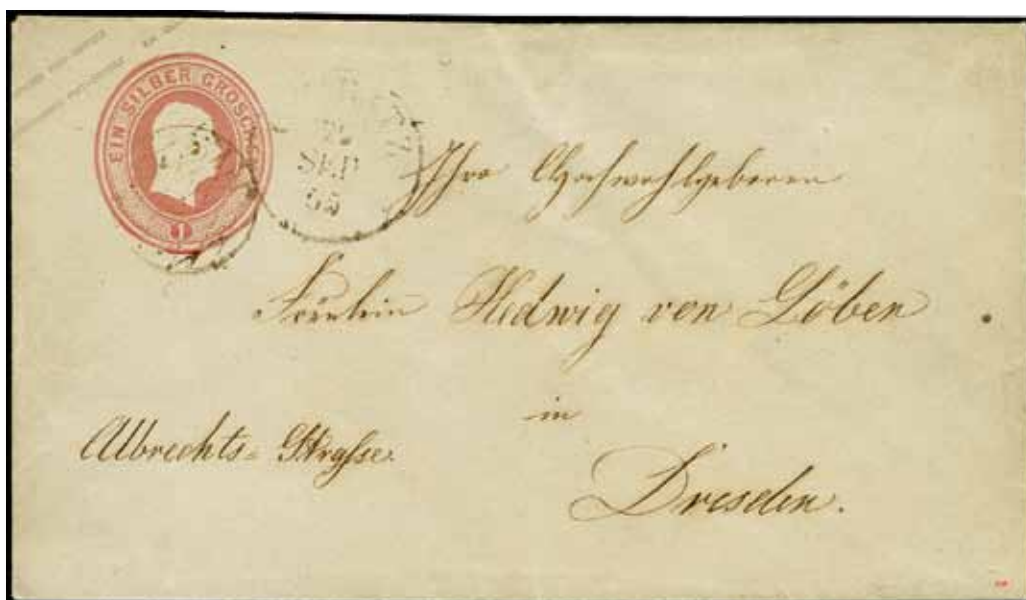 EIN SILBER GROSCHEN
1
SEP
65
Ihro Hochwohlgeboren
Fräulein Hedwig von Löben
in
Albrechts-Strasse.
Dresden.